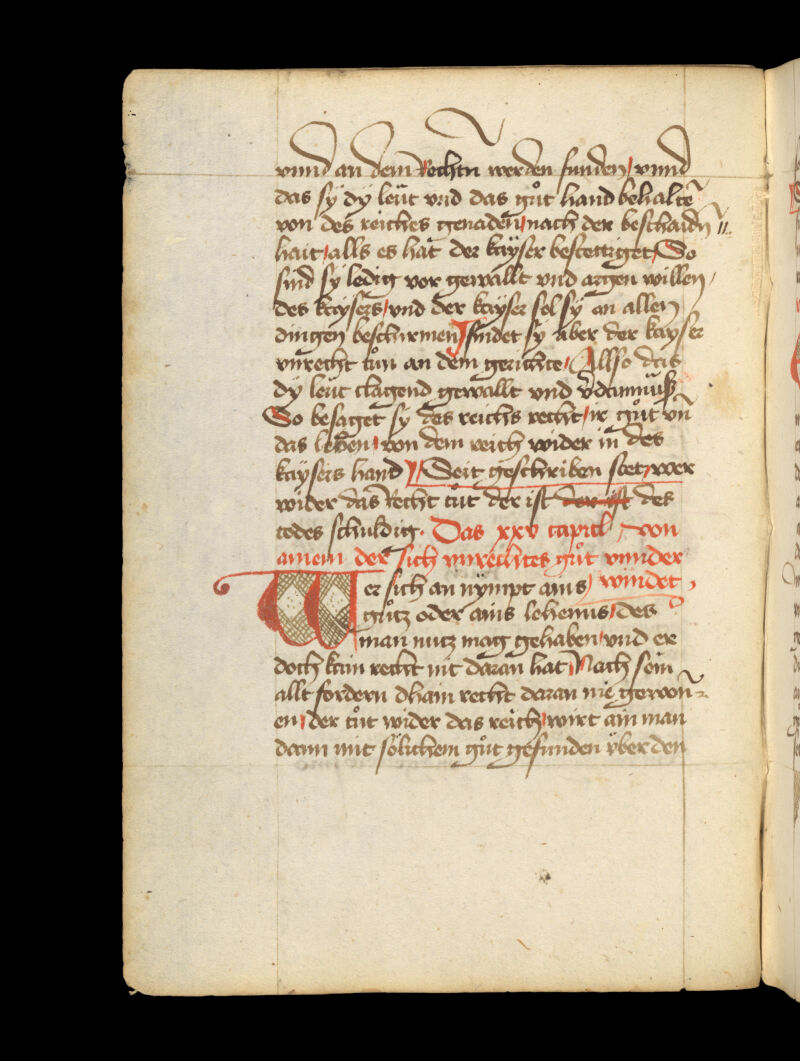 vnnd an dem Rechtn werden funden / vnnd
das sÿ dÿ leüt vnd das gůt hand behaltē
von des reiches genaden / nach der beschaidn̄ //
hait / alls es hat der kayser bestettiget / So
sind sÿ ledig vor gewallt vnd argen willen /
des kaysers / vnd der kayser sol sÿ an allen
dingen beschirmen / findet sÿ aber der kayser
vnrecht tůn an dem gerichte / Allso das
dÿ leüt clagend gewallt vnd v̄damnüß
So besaget sÿ des reichs recht / ir gůt vn̄
das lehen / von dem reich wider in des
kaysers hand / Seit geschriben stet / wer
wider das Recht tůt der ist der ist des
todes schuldig . Das xxv capitl / von
ainem der sich vnrechtes gůt vnnder
Wer sich an nÿmpt ains / windet ,
gůtz oder ains lehenns / des
man nutz mag gehaben / vnd er
doch kain recht nit daran hat / Nach sein
allt fordern dhain recht daran nie gewon̄ =
en / der tůt wider das reich / wirt ain man
dann mit sölichem gůt gefunden vber den